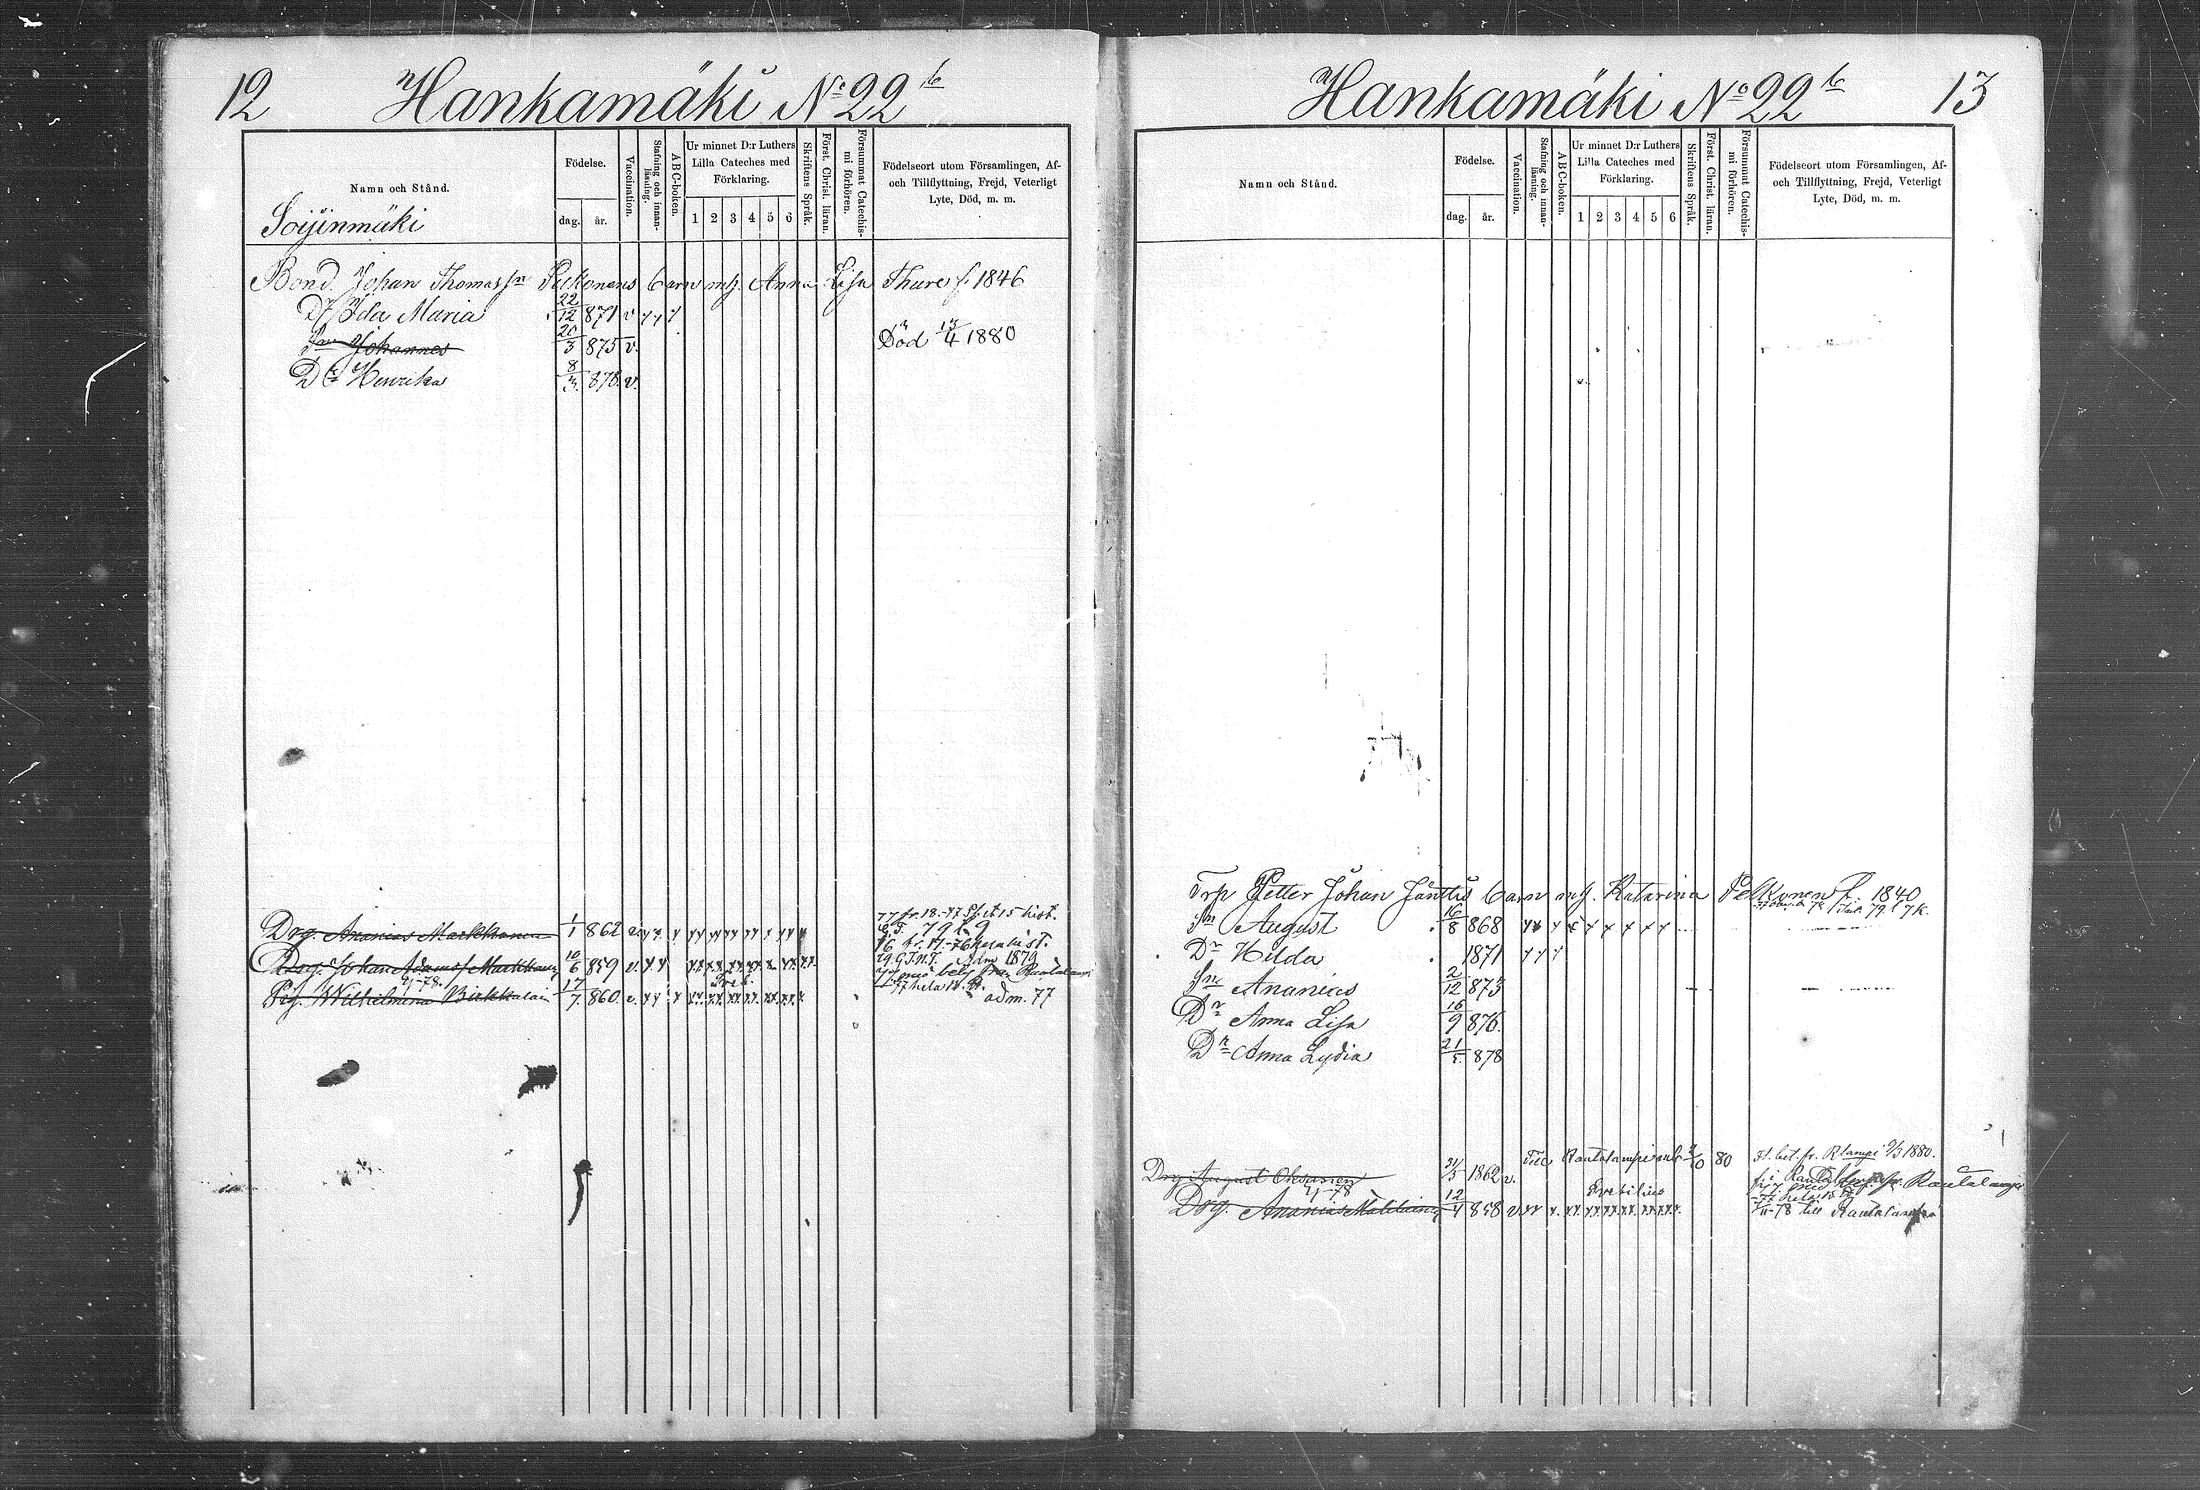 12 Hankamäki No 22 b
Namn och Stånd.
Födelse.
dag. år.
Vaccination.
Stafning och innanläsning.
A B C-boken.
Ur minnet D:r Luthers
Lilla Cateches med
Förklaring.
1 2 3 4 5 6
Skriftens Språk.
Först. Christ. läran.
Försummat Catechismi förhören.
Födelseort utom Församlingen, Af-
och Tillflyttning, Frejd, Veterligt
Lyte, Död, m. m.
Soijinmäki
Bond. Johan Thomass:n Pekonens barn m. h. Anna Lisa Thure f. 1846
Dr Ida Maria 22/12 871 v
Sn Johannes 20/3 875 v. Död 13/4 1880
Dr Henrika 8/3 878. v.
77 fr. 18.-77
Drg. Ananias Markkanen 1/1 862 v.
76 fr. 17.-76
Drg. Johan Adamsf Markkanen 10/6 859 v. Adm 1879
4/1-78.
Pig. Wilhelmina Birkkalain 17/7 860 v. adm. 77
Hankamäki No 22 b 13
Namn och Stånd.
Födelse.
dag. år.
Vaccination.
Stafning och innanläsning.
A B C-boken.
Ur minnet D:r Luthers
Lilla Cateches med
Förklaring.
1 2 3 4 5 6
Skriftens Språk.
Först. Christ. läran.
Försummat Catechismi förhören.
Födelseort utom Församlingen, Af-
och Tillflyttning, Frejd, Veterligt
Lyte, Död, m. m.
Trp Petter Johan Jäntti barn m. h. Katarina Pekkonen f. 1840
Sn August 16/8 868
Dr Hilda 1871
Sn Ananias 2/12 873
Dr Anna Lisa 16/9 876.
Dr Anna Lydia 21/5 878
Till Rautalampi 80 fl. bet. fr. Rlampi 9/3 1880.
Drg August Oksanen 31/3 1862 v.
4/1-78
Drg. Ananias 12/4 858 v. till Rautalampi